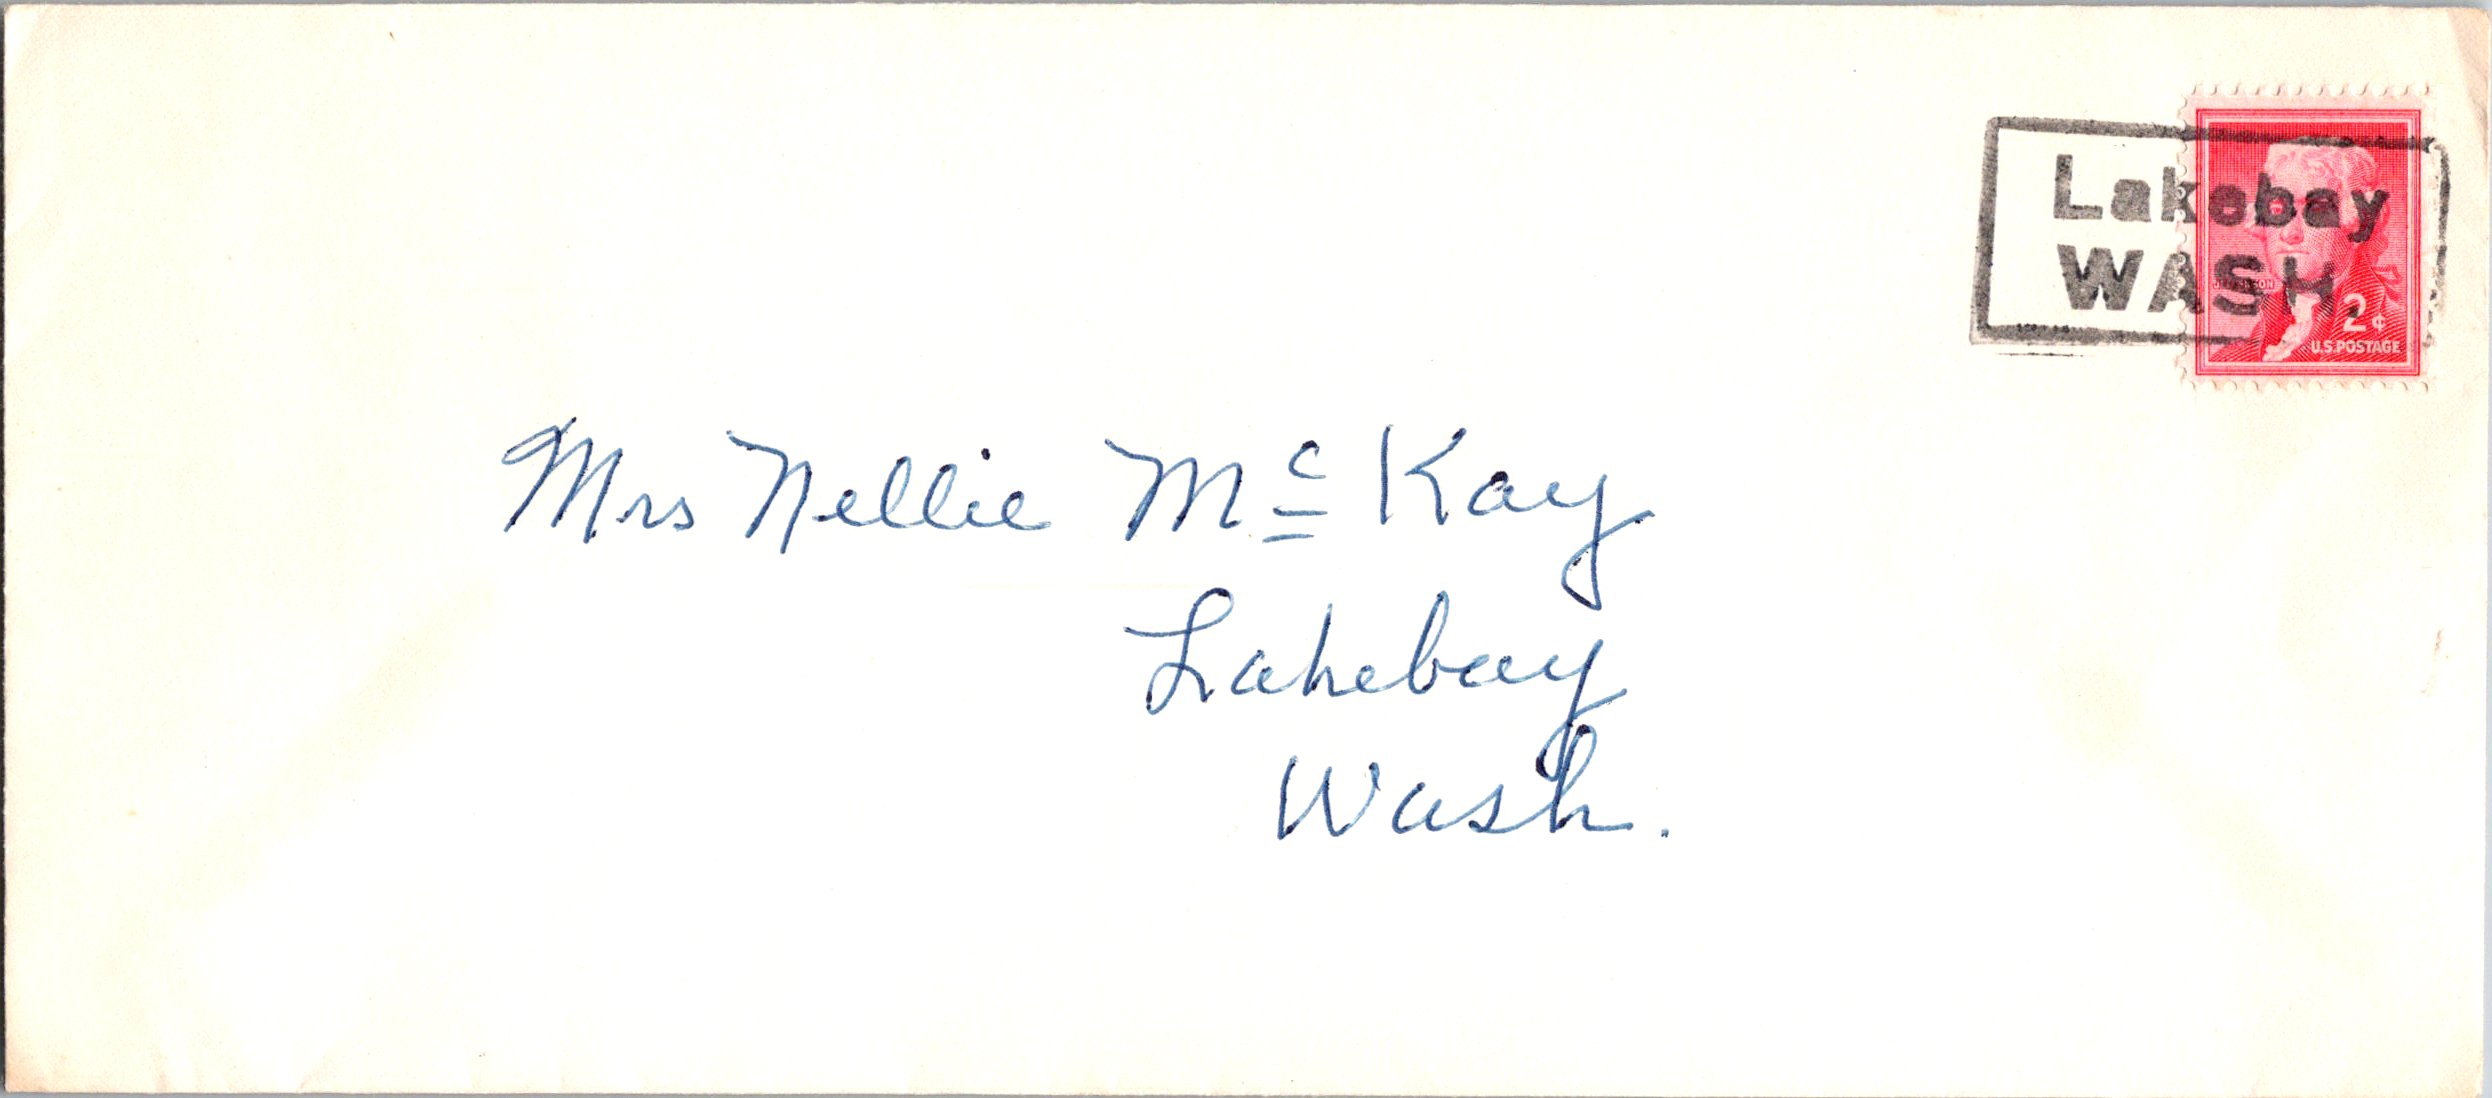 Lakebay
WASH.
JEFFERSON
2¢
U.S. POSTAGE
Mrs Nellie Mc Kay
Lakebay
Wash.